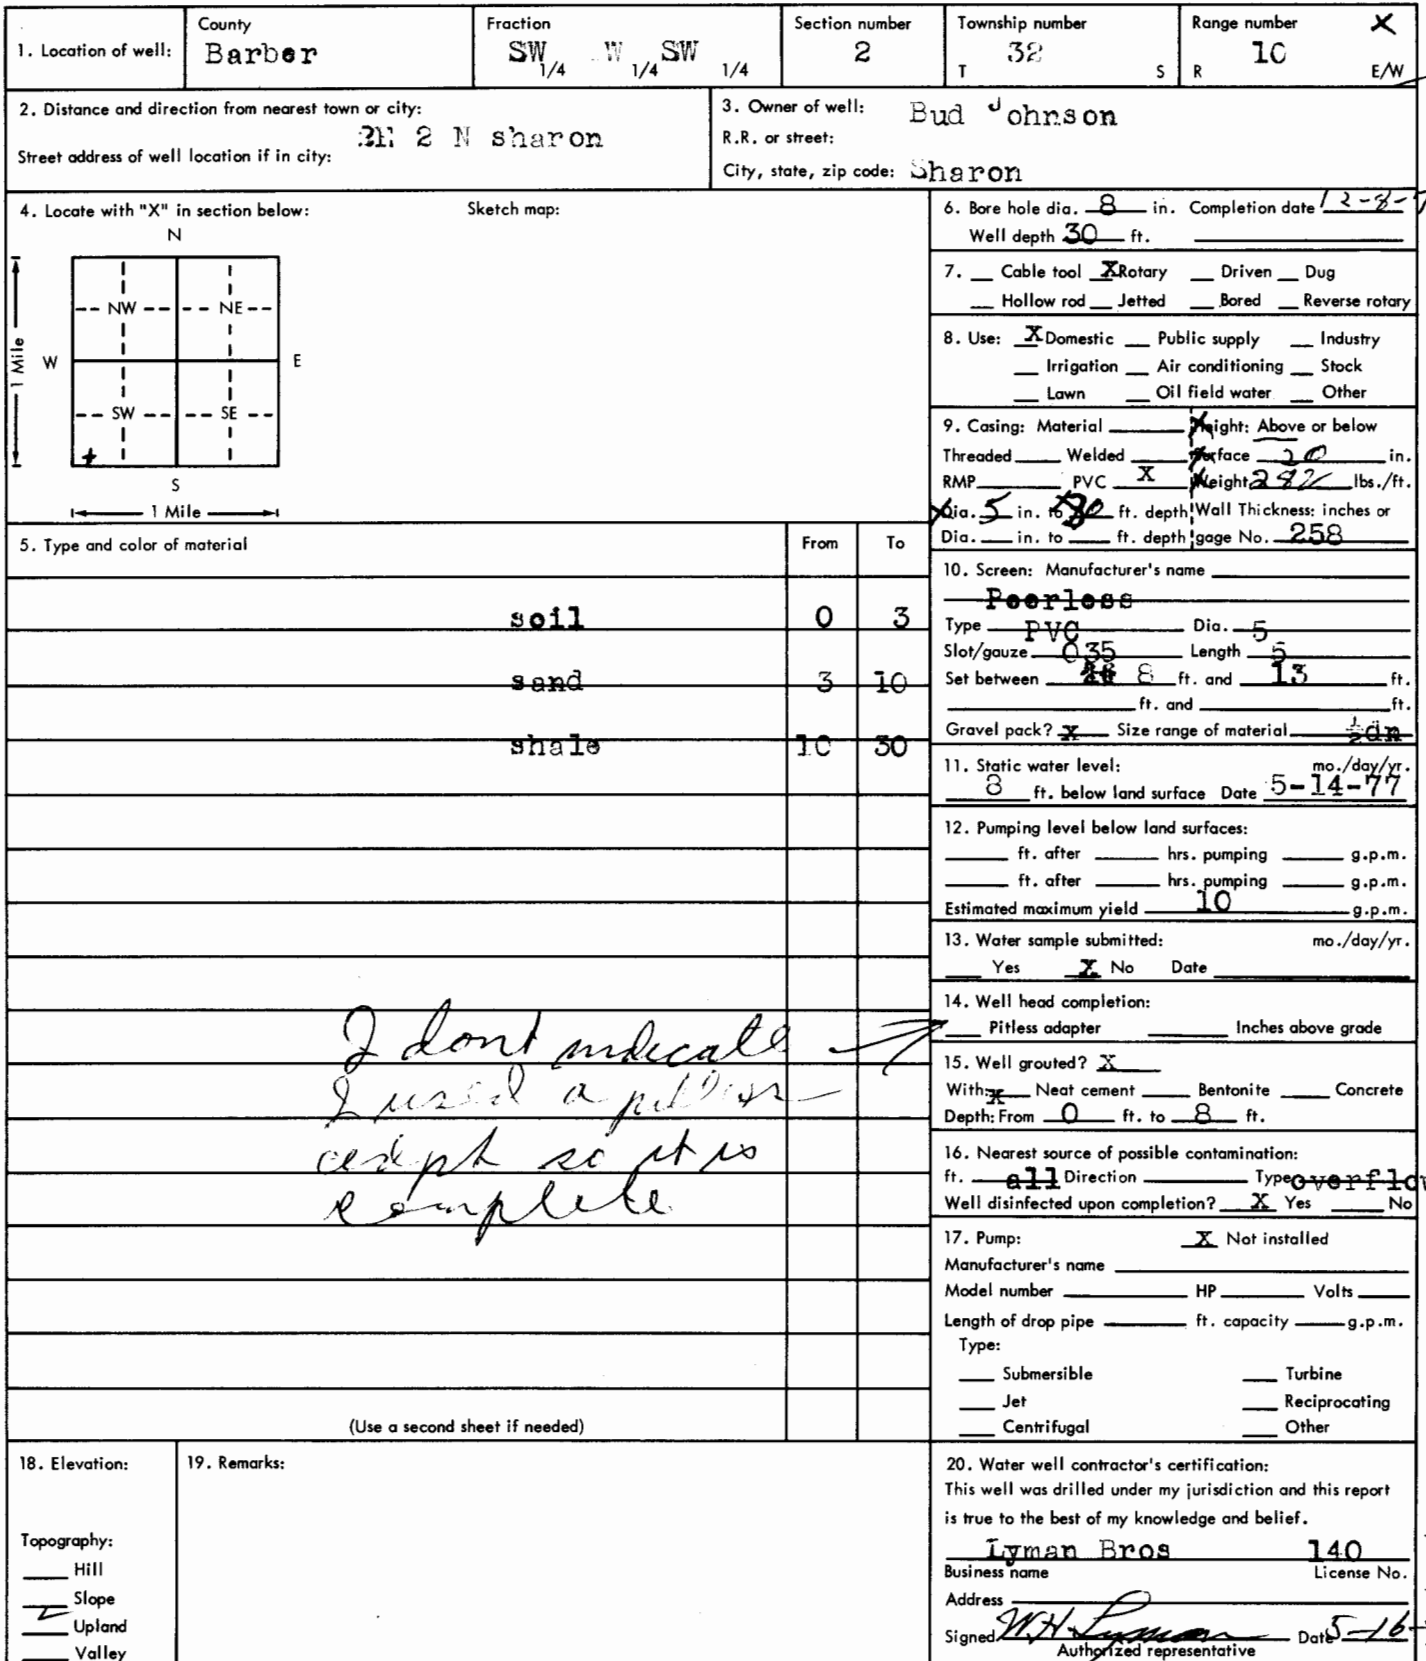 County Fraction Section number Township number Range number X
1. Location of well: Barber SW 1/4 W 1/4 SW 1/4 2 T 32 S R 10 E/W
2. Distance and direction from nearest town or city: 2 N sharon
Street address of well location if in city:
3. Owner of well: Bud Johnson
R.R. or street:
City, state, zip code: Sharon
4. Locate with "X" in section below: Sketch map:
N
NW NE
W E
1 Mile
SW SE
S
1 Mile
5. Type and color of material From To
soil 0 3
sand 3 10
shale 10 30
I dont indicate
I used a pitless
except so it is
complete
(Use a second sheet if needed)
6. Bore hole dia. 8 in. Completion date 12-8-7
Well depth 30 ft.
7. Cable tool X Rotary Driven Dug
Hollow rod Jetted Bored Reverse rotary
8. Use: X Domestic Public supply Industry
Irrigation Air conditioning Stock
Lawn Oil field water Other
9. Casing: Material Height: Above or below
Threaded Welded Surface 20 in.
RMP PVC X Weight 282 lbs./ft.
Dia. 5 in. to ft. depth Wall Thickness: inches or
Dia. in. to ft. depth gage No. 258
10. Screen: Manufacturer's name
Peerless
Type PVC Dia. 5
Slot/gauze 035 Length 5
Set between 8 ft. and 13 ft.
ft. and ft.
Gravel pack? x Size range of material ½dn
11. Static water level: mo./day/yr.
8 ft. below land surface Date 5-14-77
12. Pumping level below land surfaces:
ft. after hrs. pumping g.p.m.
ft. after hrs. pumping g.p.m.
Estimated maximum yield 10 g.p.m.
13. Water sample submitted: mo./day/yr.
Yes X No Date
14. Well head completion:
Pitless adapter Inches above grade
15. Well grouted? X
With: x Neat cement Bentonite Concrete
Depth: From 0 ft. to 8 ft.
16. Nearest source of possible contamination:
ft. all Direction Type overflow
Well disinfected upon completion? X Yes No
17. Pump: X Not installed
Manufacturer's name
Model number HP Volts
Length of drop pipe ft. capacity g.p.m.
Type:
Submersible Turbine
Jet Reciprocating
Centrifugal Other
18. Elevation:
Topography:
Hill
Slope
Upland
Valley
19. Remarks:
20. Water well contractor's certification:
This well was drilled under my jurisdiction and this report
is true to the best of my knowledge and belief.
Lyman Bros 140
Business name License No.
Address
Signed W.H. Lyman Date 5-16-
Authorized representative